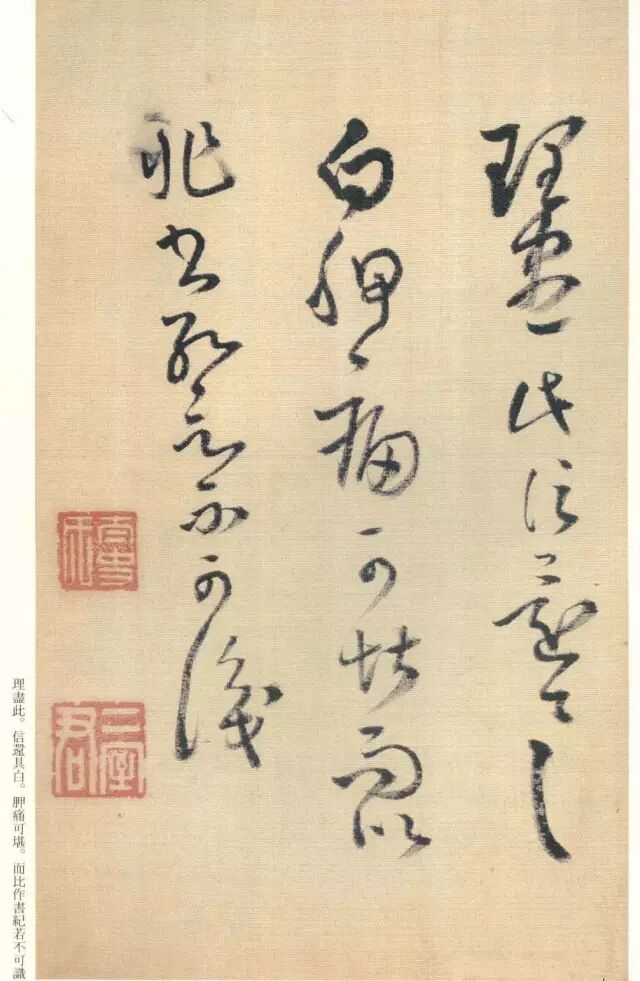 理盡此信還具
白胛痛可堪而比
作書紀若不可識
理盡此。信還具白。胛痛可堪。而比作書紀若不可識